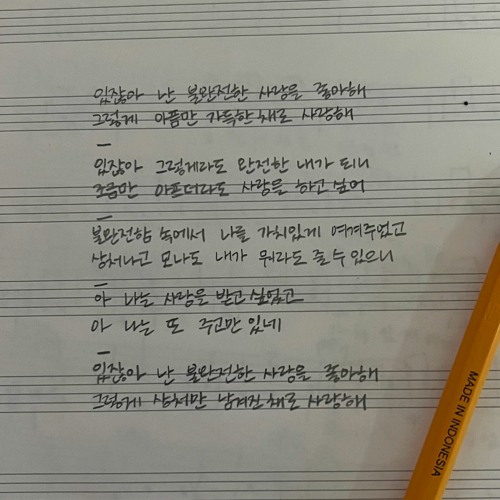 있잖아 난 불완전한 사랑을 좋아해
그렇게 아픔만 가득한 채로 사랑해
있잖아 그렇게라도 완전한 내가 되니
조금만 아프더라도 사랑을 하고 싶어
불완전함 속에서 나를 가치있게 여겨주었고
상처나고 모나도 내가 뭐라도 줄 수 있으니
아 나는 사랑을 받고 싶었고
아 나는 또 주고만 있네
있잖아 난 불완전한 사랑을 좋아해
그렇게 상처만 남겨진 채로 사랑해
MADE IN INDONESIA